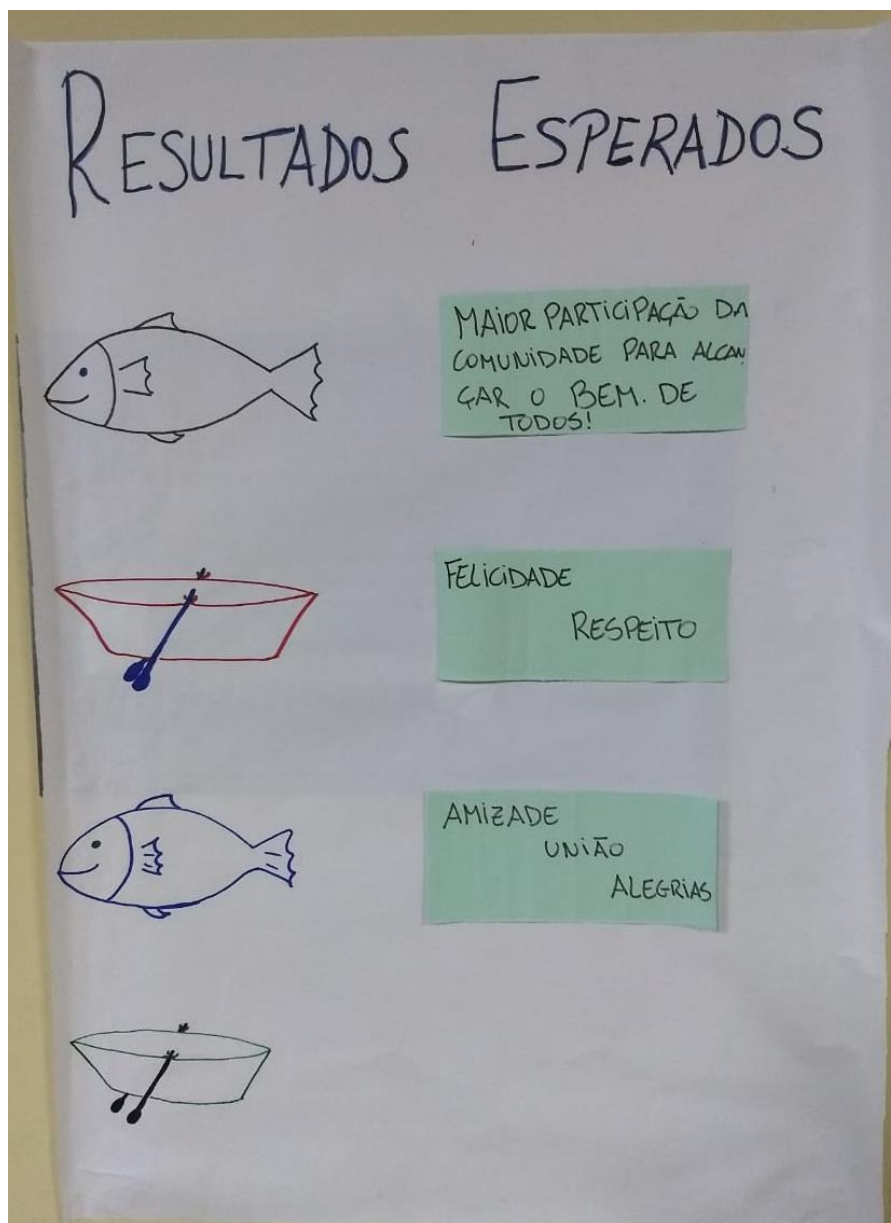 RESULTADOS ESPERADOS
MAIOR PARTICIPAÇÃO DA
COMUNIDADE PARA ALCAN
ÇAR O BEM. DE
TODOS!
FELICIDADE
RESPEITO
AMIZADE
UNIÃO
ALEGRIAS